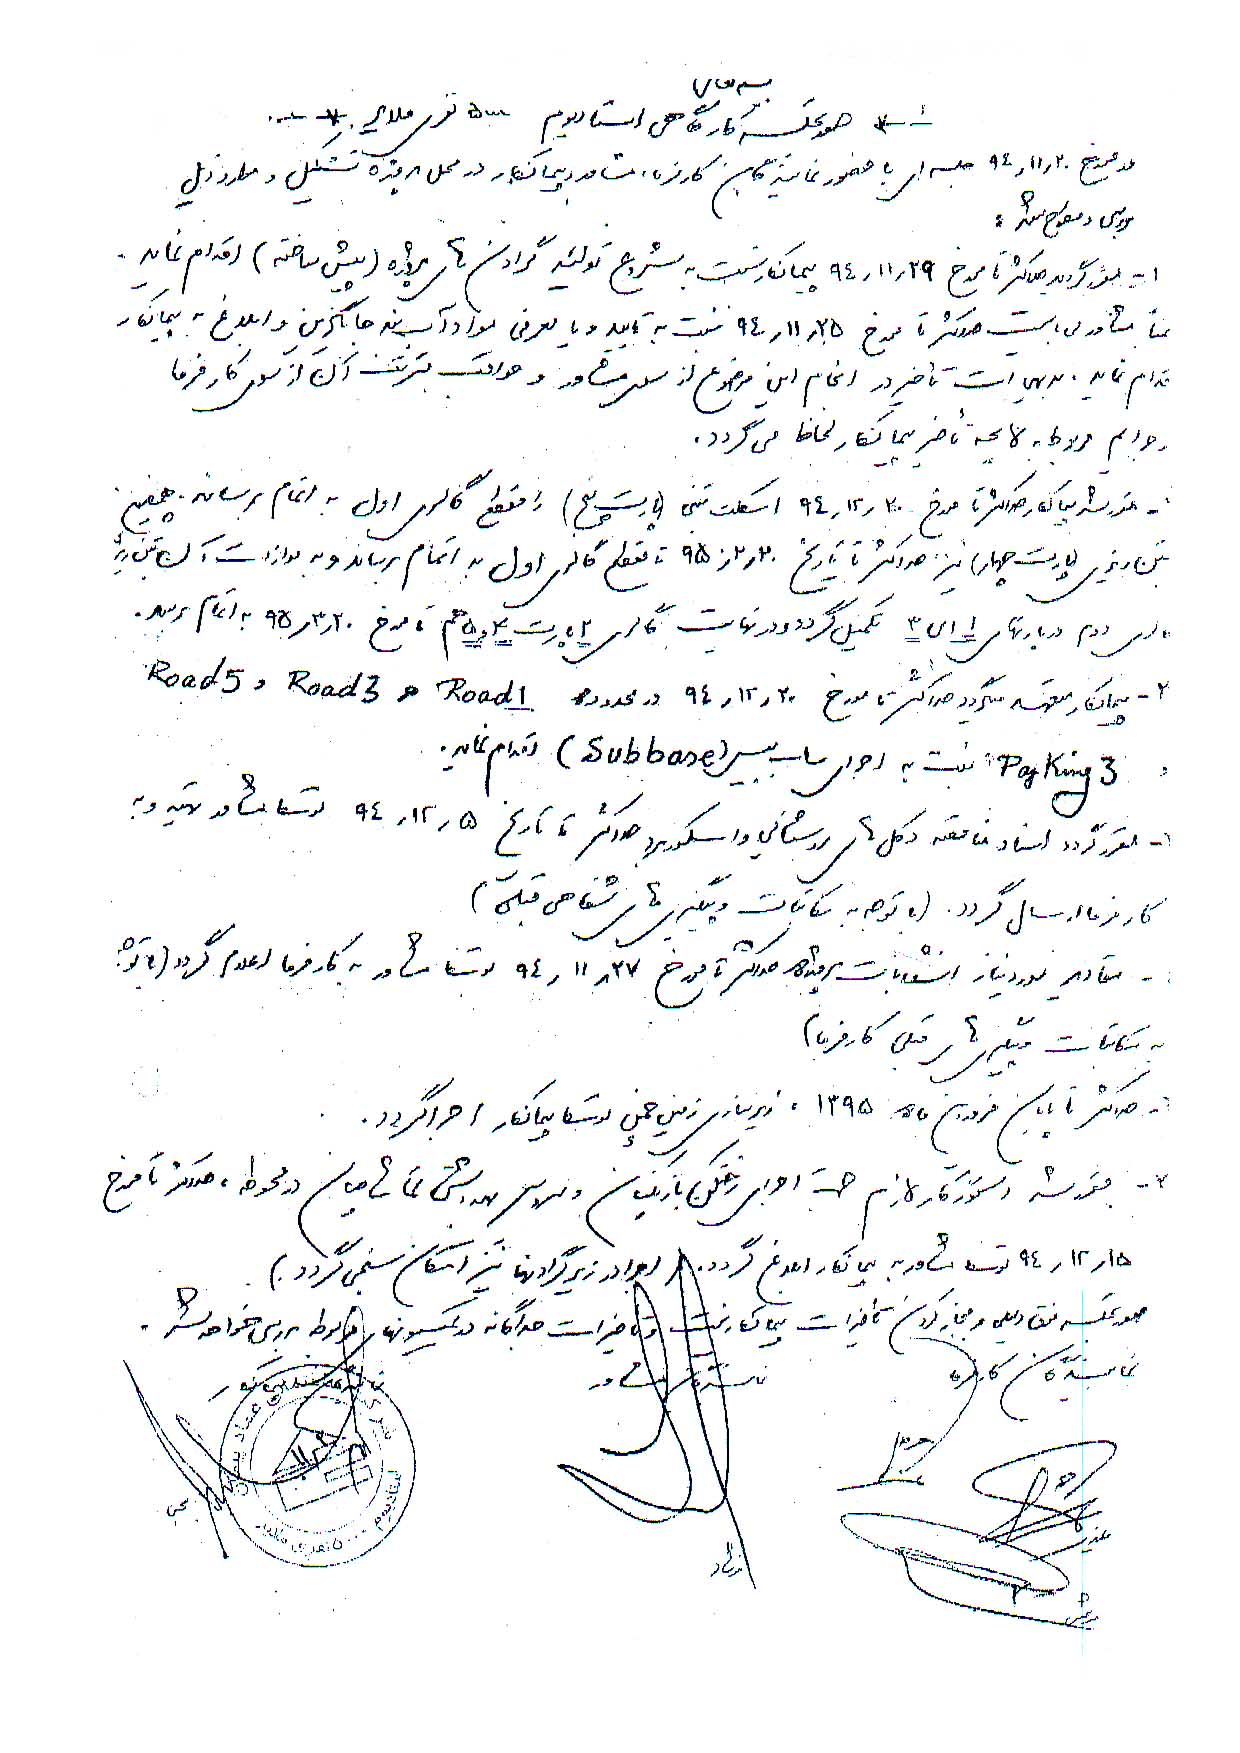 بسمه تعالی
صورتجلسه کارگاهی استادیوم ۵۰۰۰ نفری ملایر
در مورخ ۹۴٫۱۱٫۲۰ جلسه ای با حضور نمایندگان کارفرما، مشاور و پیمانکار در محل پروژه تشکیل و موارد ذیل
بررسی و مطرح شد:
۱- مقرر گردید حداکثر تا مورخ ۹۴٫۱۱٫۲۹ پیمانکار نسبت به شروع تولید گرادن های پروژه (پیش ساخته) اقدام نماید.
ضمناً مشاور می بایست حداکثر تا مورخ ۹۴٫۱۱٫۲۵ نسبت به تایید و یا معرفی مواد آب بند جایگزین و ابلاغ به پیمانکار
اقدام نماید. بدیهی است تأخیر در انجام این موضوع از سوی مشاور و عواقب آن از سوی کارفرما
و جرایم مربوط به لایحه تأخیر پیمانکار لحاظ می گردد.
مقرر شد پیمانکار حداکثر تا مورخ ۹۴٫۱۲٫۲۰ اسکلت بتنی (پارت پنج) را مقطع گالری اول به اتمام برساند. همچنین
بتن ریزی (پارت چهار) نیز حداکثر تا تاریخ ۹۵٫۲٫۲۰ تا مقطع گالری اول به اتمام برساند و به موازات آن بتن ریزی
گالری دوم در پارتهای ۱ الی ۳ تکمیل گردد و در نهایت گالری ۲ پارت ۴ و ۵ هم تا مورخ ۹۵٫۳٫۲۰ به اتمام برسد.
۳- پیمانکار متعهد میگردد حداکثر تا مورخ ۹۴٫۱۲٫۲۰ در محدوده Road1 و Road3 و Road5
و Parking3 نسبت به اجرای ساب بیس (Subbase) اقدام نماید.
مقرر گردد اسناد مناقصه دکل های روشنایی و اسکوربرد حداکثر تا تاریخ ۹۴٫۱۲٫۵ توسط مشاور تهیه و به
کارفرما ارسال گردد. (با توجه به مکاتبات و پیگیری های شفاهی قبلی)
- مقادیر مورد نیاز انشعابات پروژه حداکثر تا مورخ ۹۴٫۱۱٫۲۷ توسط مشاور به کارفرما اعلام گردد (با توجه
به مکاتبات و پیگیری های قبلی کارفرما)
- حداکثر تا پایان فروردین ماه ۱۳۹۵، زیرسازی زمین چمن توسط پیمانکار اجرا گردد.
- مقرر شد دستور کار لازم جهت اجرای رختکن بازیکنان و سرویس بهداشتی تماشاچیان در محوطه، حداکثر تا مورخ
۹۴٫۱۲٫۱۵ توسط مشاور به پیمانکار ابلاغ گردد. (اجرا در زیر گرادنها نیز امکان سنجی گردد.)
صورتجلسه فوق دلیلی بر مجاز کردن تاخیرات پیمانکار نیست و تاخیرات جداگانه در کمیسیونهای مربوطه بررسی خواهد شد.
نمایندگان کارفرما نمایندگان مشاور نماینده پیمانکار